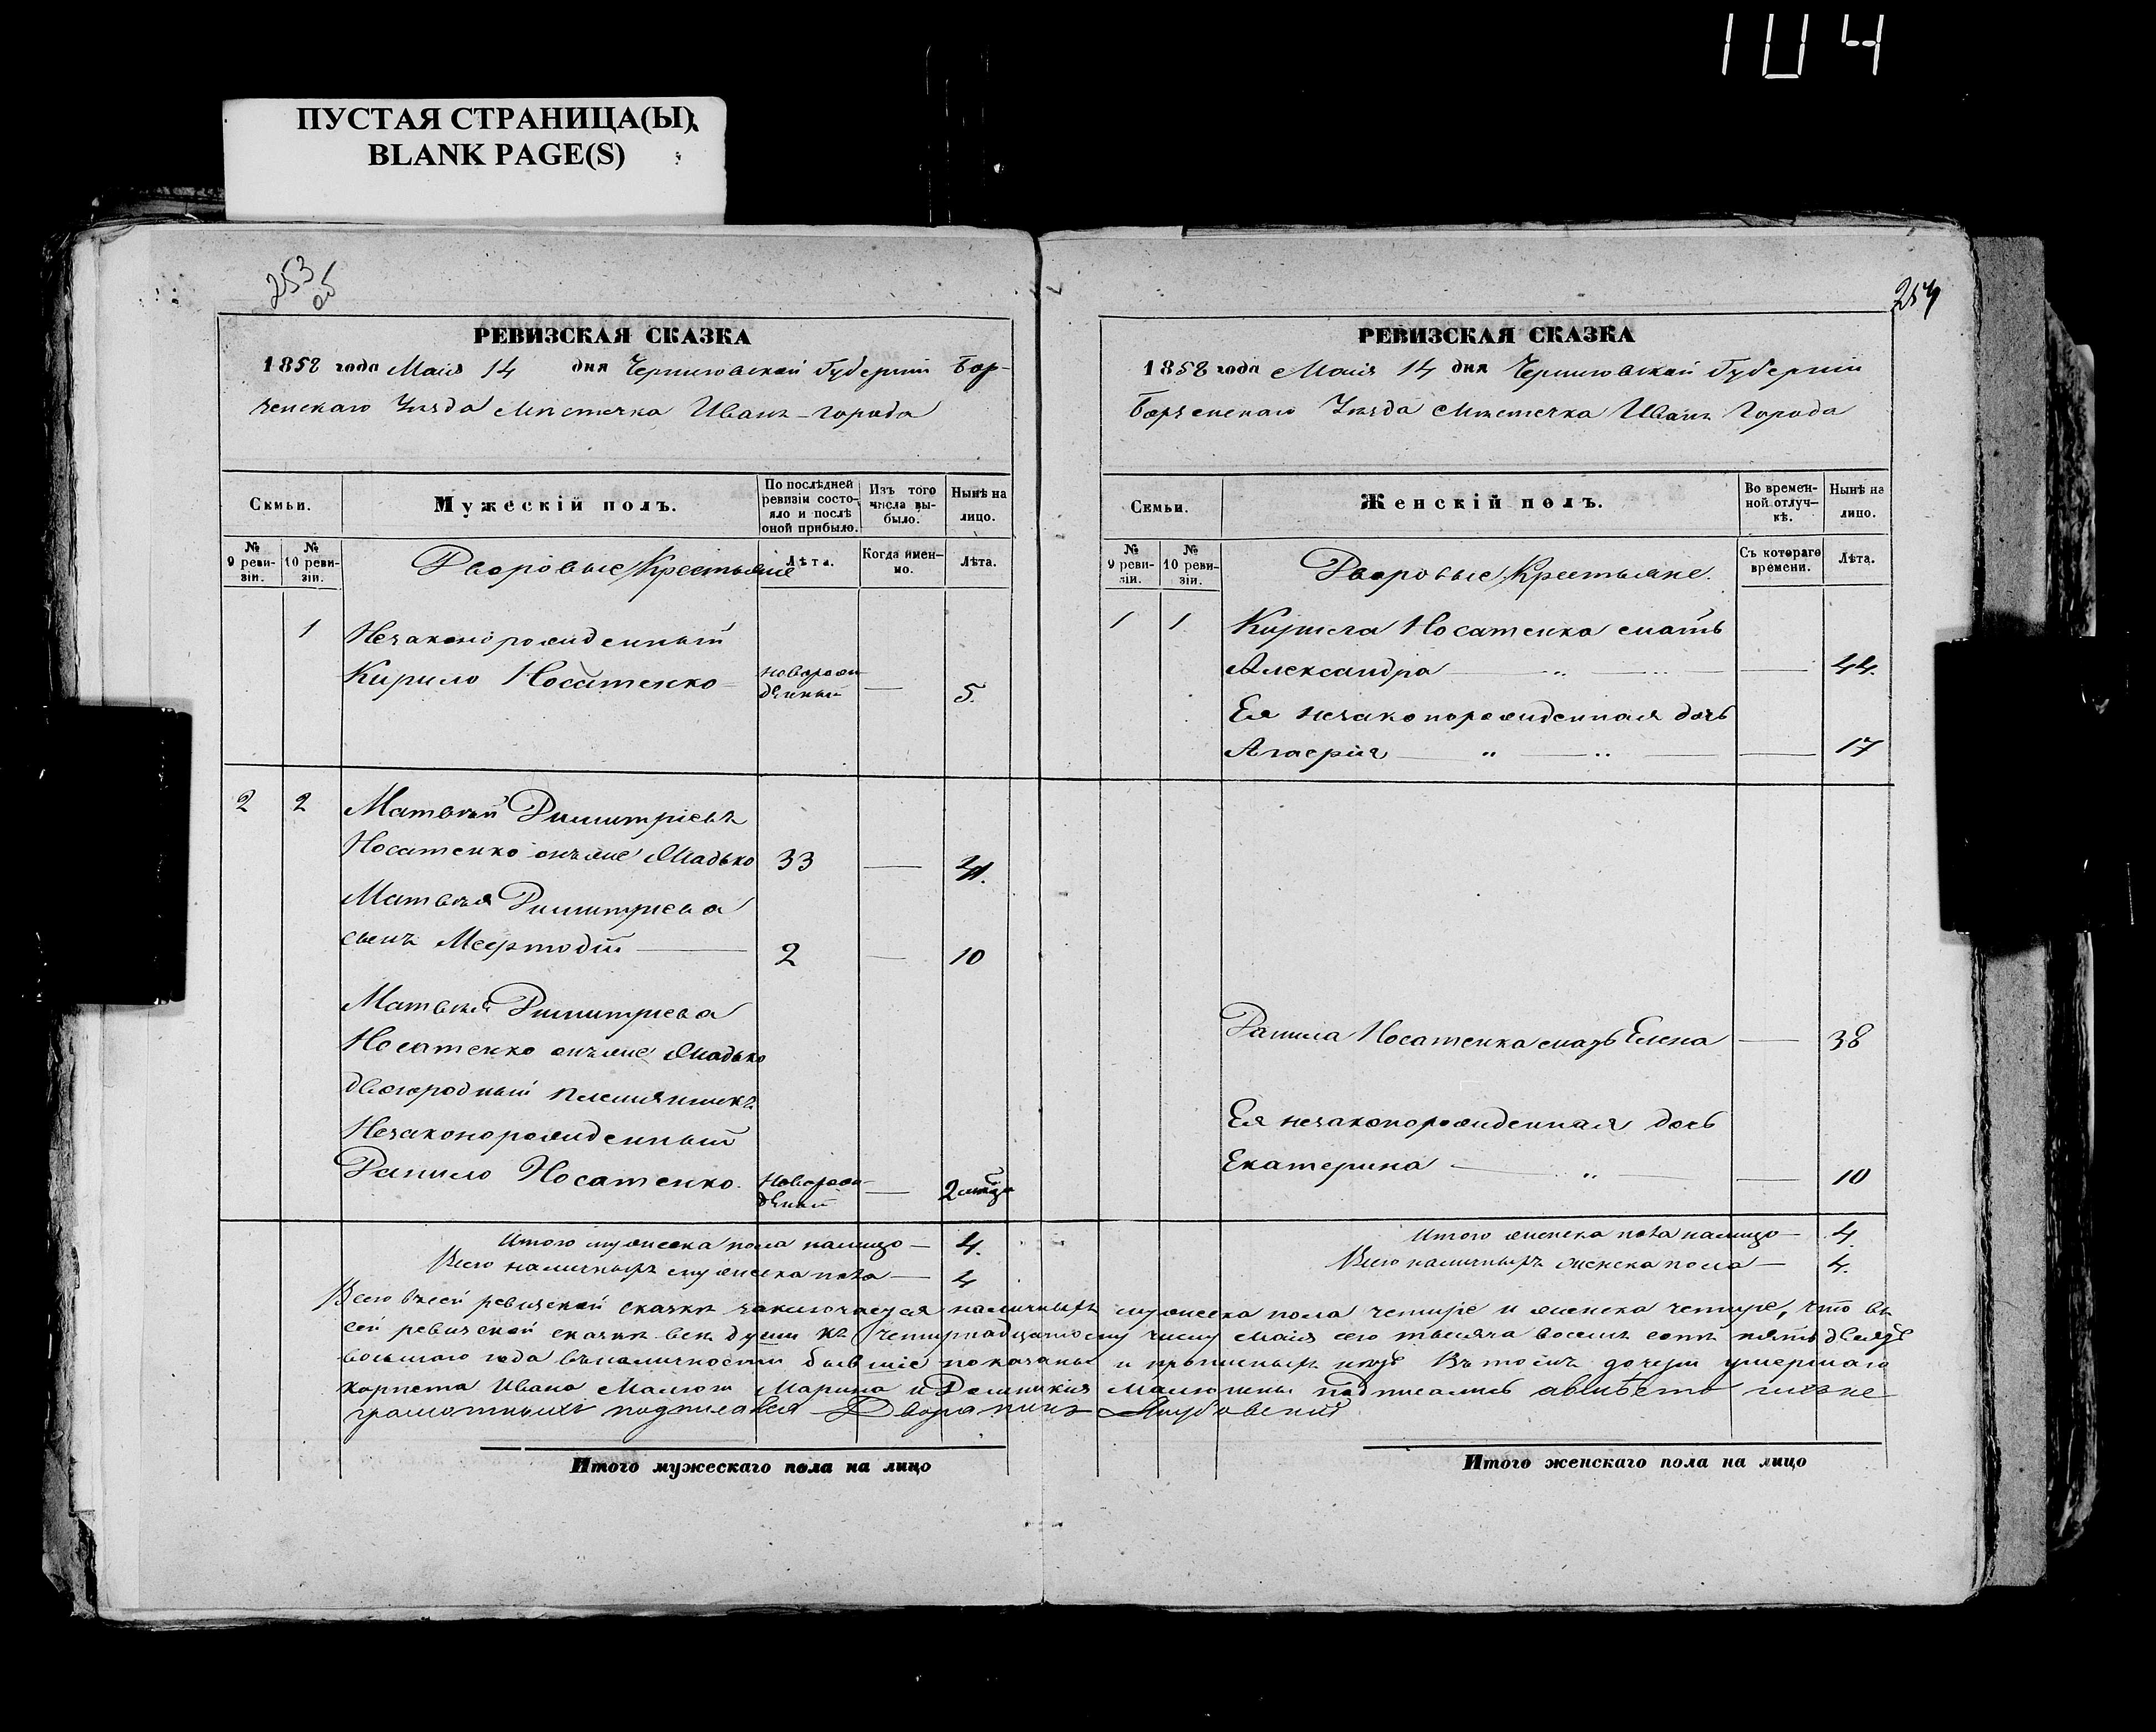 104
ПУСТАЯ СТРАНИЦА(Ы)
BLANK PAGE(S)
253
об
РЕВИЗСКАЯ СКАЗКА
1858 года Маія 14 дня Черниговской Губерніи Бор-
зенскаго Уѣзда мѣстечка Иванъ-города
Семьи.
Мужескій полъ.
По послѣдней ревизіи состояло и послѣ оной прибыло.
Изъ того числа выбыло.
Нынѣ на лицо.
№ 9 ревизіи.
№ 10 ревизіи.
Дворовые Крестьяне
Лѣта.
Когда именно.
Лѣта.
1
Незаконорожденный
Кирило Носатенко
новорож
денный
5.
2 2 Матвѣй Димитріевъ
Носатенко онъже 33 41.
Матвѣя Димитріева
сынъ Мефтодій 2 10
Матвѣя Димитріева
Носатенко онъже
двоюродный племянникъ
Незаконорожденный
Данило Носатенко. новорож
денный
2
Итого мужеска пола налицо 4.
Всего наличныхъ мужеска пола 4
254
РЕВИЗСКАЯ СКАЗКА
1858 года Маія 14 дня Черниговской Губерніи
Борзенскаго Уѣзда мѣстечка Иванъ Города
Семьи.
Женскій полъ.
Во временной отлучкѣ.
Нынѣ на лицо.
№ 9 ревизіи.
№ 10 ревизіи.
Дворовые Крестьяне.
Съ котораго времени.
Лѣта.
1 1 Кирила Носатенка мать
Александра 44.
Ея незаконорожденная дочь
17
Данила Носатенка мать Елена 38
Ея незаконорожденная дочь
Екатерина 10
Итого женска пола налицо 4.
Всего наличныхъ женска пола 4.
Всего въ сей ревизской сказкѣ заключается наличныхъ мужеска пола четире и женска четире, что въ
сей ревизской сказкѣ всѣ души къ четырнадцатому числу маія сего тысяча восемь сотъ пятьдесятъ
восьмаго года въ наличности бывшіе показаны и прописныхъ нѣтъ Въ томъ дочери умершаго
Ивана Марина и Домникія подписались а вмѣсто ихъ не
грамотныхъ подписался Дворянинъ
Итого мужескаго пола на лицо
Итого женскаго пола на лицо